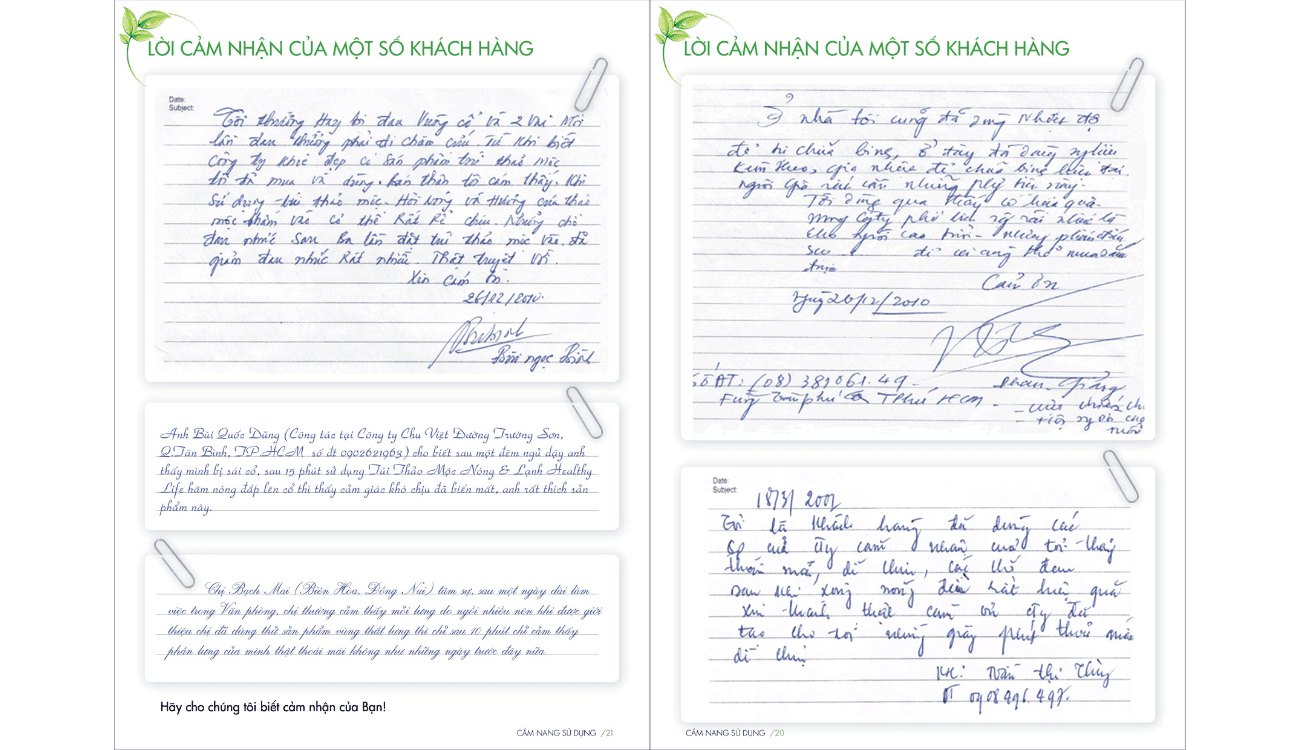 LỜI CẢM NHẬN CỦA MỘT SỐ KHÁCH HÀNG
Date:
Subject:
Tôi thường Hay bị đau Vương cổ và 2 Vai Mỗi
lần đau thường phải đi Châm cứu, Từ Khi biết
Công ty Khoẻ đẹp có Sản phẩm túi thảo mộc
tôi đã mua và dùng, bản thân tôi cảm thấy. Khi
Sử dụng túi thảo mộc. Hơi nóng và Hương của thảo
mộc thấm vào cơ thể Rất dễ chịu. Những chỗ
đau nhức Sau Ba lần đặt túi thảo mộc vào. đã
giảm đau nhức Rất nhiều. Thật tuyệt vời.
Xin Cảm ơn.
26/12/2010.
Bùi ngọc Bình
Anh Bùi Quốc Dũng (Công tác tại Công ty Chu Việt Đường Trường Sơn,
Q.Tân Bình, TP.HCM số đt 0902621963) cho biết sau một đêm ngủ dậy anh
thấy mình bị sái cổ, sau 15 phút sử dụng Túi Thảo Mộc Nóng & Lạnh Healthy
Life hâm nóng đắp lên cổ thì thấy cảm giác khó chịu đã biến mất, anh rất thích sản
phẩm này.
Chị Bạch Mai (Biên Hòa, Đồng Nai) tâm sự, sau một ngày dài làm
việc trong Văn phòng, chị thường cảm thấy mỏi lưng do ngồi nhiều nên khi được giới
thiệu chị đã dùng thử sản phẩm vùng thắt lưng thì chỉ sau 10 phút chị cảm thấy
phần lưng của mình thật thoải mái không như những ngày trước đây nữa.
Hãy cho chúng tôi biết cảm nhận của Bạn!
CẨM NANG SỬ DỤNG /21
LỜI CẢM NHẬN CỦA MỘT SỐ KHÁCH HÀNG
Ở nhà tôi cũng đã dùng nhiều
để chữa bệnh, ở đây đã dùng
người già rất cần những
Tôi dùng qua thấy có hiệu quả.
mong Cty phổ biến rộng rãi nhất là
cho người cao tuổi - những
để ai cũng có thể mua
được
Cảm ơn
Ngày 26/12/2010
Số ĐT: (08) 381061.49 -
Date:
Subject:
18/3/2001
Tôi là Khách hàng đã dùng các
Sp của Cty cảm nhận của tôi thấy
thoải mái, dễ chịu,
sau khi xông nóng đều rất hiệu quả
xin thành thật cảm ơn Cty đã
tạo cho tôi những giây phút thoải mái
dễ chịu
KH: Trần thị Thủy
ĐT 0908496.497.
CẨM NANG SỬ DỤNG /20